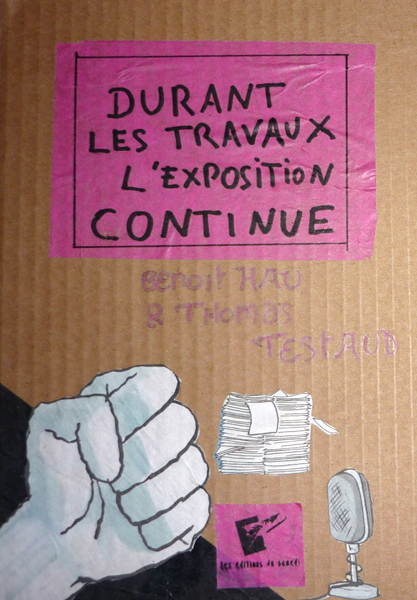 DURANT
LES TRAVAUX
L'EXPOSITION
CONTINUE
BENOIT HAU
& THOMAS
TESTAUD
Les éditions du